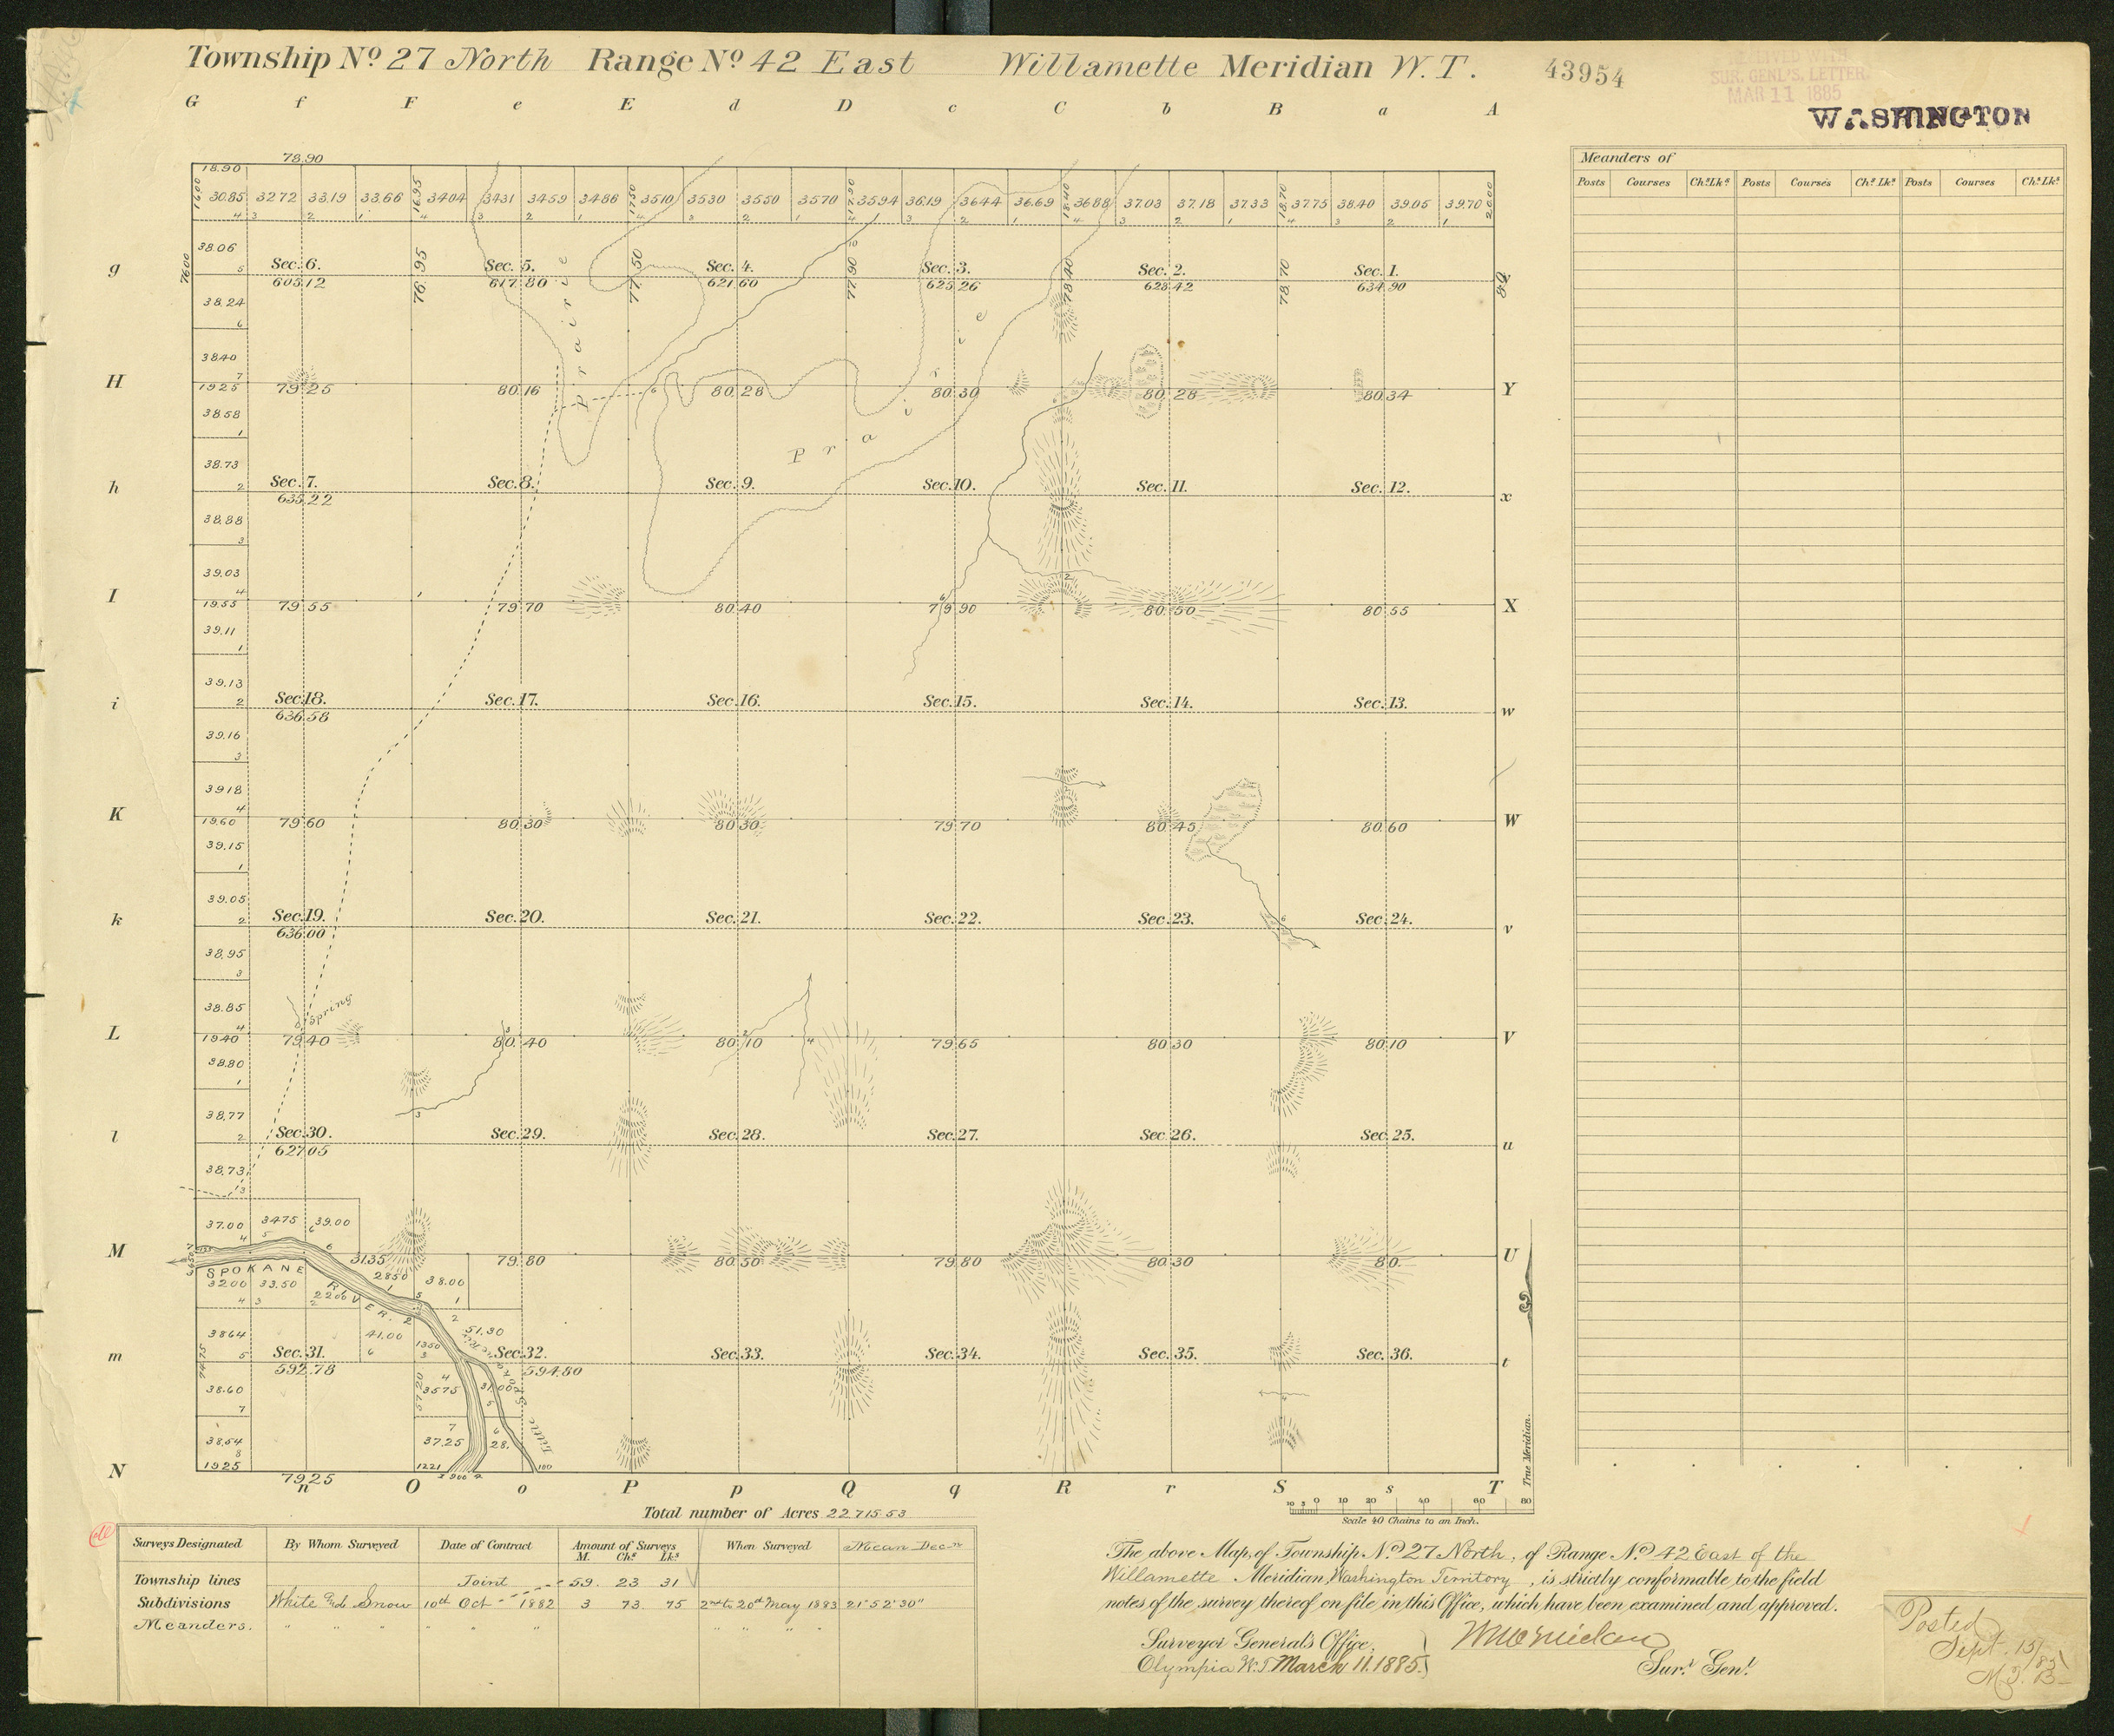 Township Nº 27 North Range Nº 42 East Willamette Meridian W.T.
43954
SUR. GENL'S. LETTER
MAR 11 1885
WASHINGTON
G f F e E d D c C b B a A
78.90
18.90
16.00 16.95 17.50 17.90 18.40 18.70 20.00
30.85 32.72 33.19 33.66 34.04 34.31 34.59 34.86 35.10 35.30 35.50 35.70 35.94 36.19 36.44 36.69 36.88 37.03 37.18 37.33 37.75 38.40 39.05 39.70
4 3 2 1 4 3 2 1 4 3 2 1 4 3 2 1 4 3 2 1 4 3 2 1
g
76.00 76.95 77.50 77.90 78.40 78.70 80.
38.06
5
Sec. 6. Sec. 5. Sec. 4. Sec. 3. Sec. 2. Sec. 1.
605.12 617.80 621.60 625.26 628.42 634.90
38.24
6
Prairie
Prairie
38.40
7
H Y
19.25 79.25 80.16 80.28 80.30 80.28 80.34
38.58
1
38.73
2
h x
Sec. 7. Sec. 8. Sec. 9. Sec. 10. Sec. 11. Sec. 12.
635.22
38.88
3
39.03
4
I X
19.55 79.55 79.70 80.40 79.90 80.50 80.55
39.11
1
39.13
2
i w
Sec. 18. Sec. 17. Sec. 16. Sec. 15. Sec. 14. Sec. 13.
636.58
39.16
3
39.18
4
K W
19.60 79.60 80.30 80.30 79.70 80.45 80.60
39.15
1
39.05
2
k v
Sec. 19. Sec. 20. Sec. 21. Sec. 22. Sec. 23. Sec. 24.
636.00
38.95
3
38.85
4
Spring
L V
19.40 79.40 80.40 80.10 79.65 80.30 80.10
38.80
1
38.77
2
l u
Sec. 30. Sec. 29. Sec. 28. Sec. 27. Sec. 26. Sec. 25.
627.05
38.73
3
37.00 34.75 39.00
4 5 6
M U
31.35 79.80 80.50 79.80 80.30 80.
SPOKANE RIVER.
32.00 33.50 22.00 28.50 38.00
4 3 2 1 1
38.64 41.00 13.50 51.30
5 6 3 2
74.75
m t
Sec. 31. Sec. 32. Sec. 33. Sec. 34. Sec. 35. Sec. 36.
592.78 594.80
57.20
38.60 35.75 31.00
7 4 5
Little Spokane Riv.
38.54 37.25 28.
8 7 6
19.25 12.21 9.00 1.00
N
79.25
n O o P p Q q R r S s T
True Meridian.
10 5 0 10 20 40 60 80
Scale 40 Chains to an Inch.
Total number of Acres 22.715.53
Meanders of
Posts Courses Chs. Lks. Posts Courses Chs. Lks. Posts Courses Chs. Lks.
Surveys Designated By Whom Surveyed Date of Contract Amount of Surveys When Surveyed Mean Decn
M. Chs. Lks.
Township lines Joint 59. 23 31
Subdivisions White and Snow 10th Oct 1882 3 73 75 2nd to 20th May 1883 21° 52' 30"
Meanders. " " " " " " " " " "
The above Map, of Township Nº 27 North, of Range Nº 42 East of the
Willamette Meridian, Washington Territory, is strictly conformable to the field
notes of the survey thereof on file in this Office, which have been examined and approved.
Surveyor General's Office,
Olympia W.T. March 11. 1885.
Sur. Genl.
Posted
Sept. 15/85